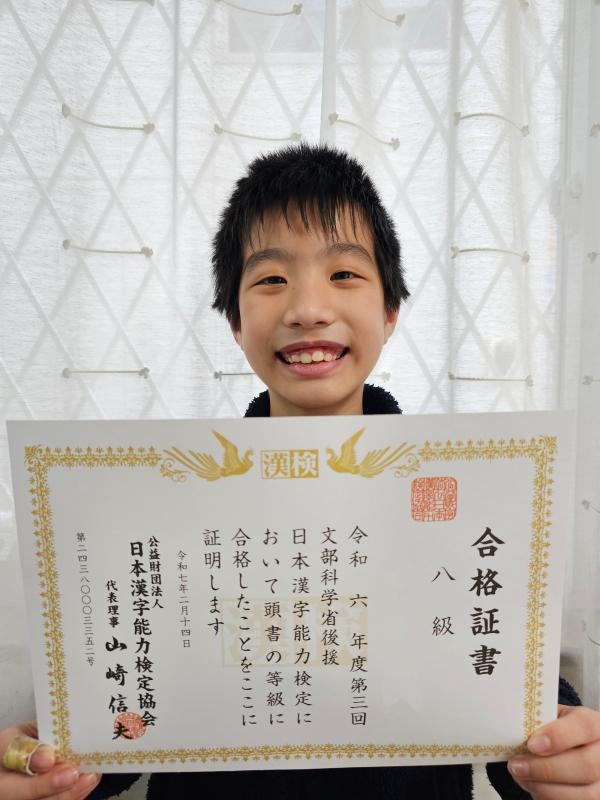 漢検
合格証書
八級
令和六年度第三回
文部科学省後援
日本漢字能力検定に
おいて頭書の等級に
合格したことをここに
証明します
令和七年二月十四日
公益財団法人
日本漢字能力検定協会
代表理事 山崎信夫
第二四三八〇〇〇三三五二号